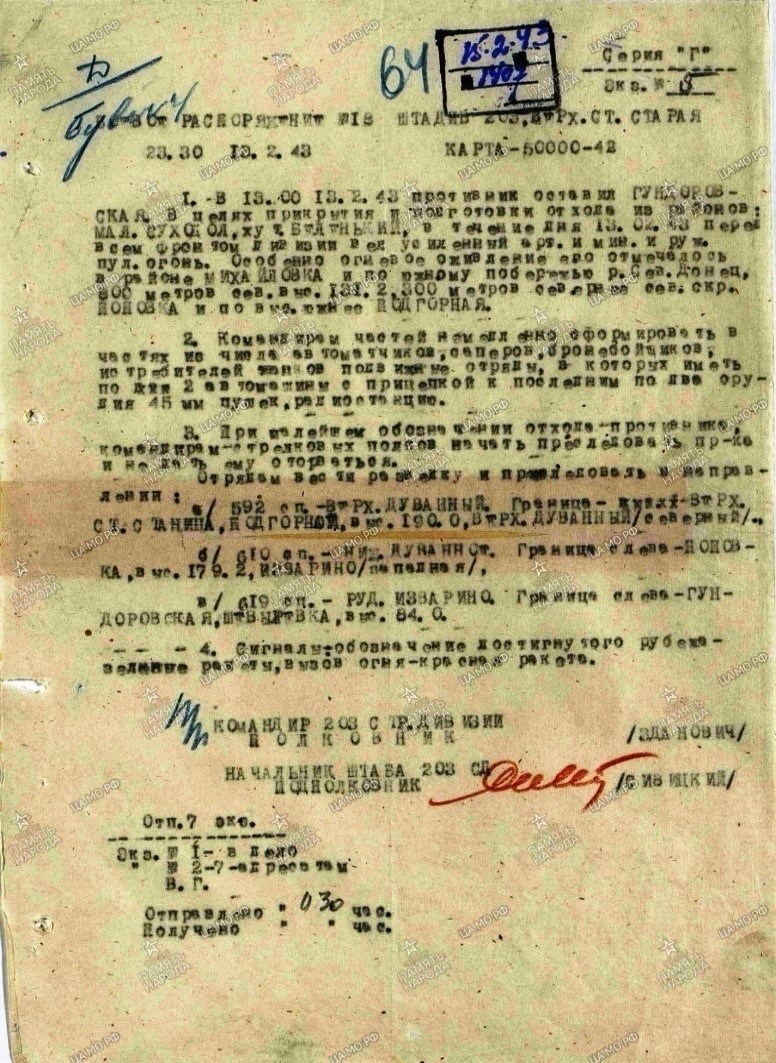 Серия "Г"
Экз. № 8
64
15.2.43
1407
БОЕВОЕ РАСПОРЯЖЕНИЕ №18 ШТАДИВ 203, ВЕРХ. СТ. СТАРАЯ
23.30 13.2.43 КАРТА-50000-42
1. В 13.00 13.2.43 противник оставил ГУНДОРОВ-
СКАЯ. В целях прикрытия и подготовки отхода из районов:
МАЛ. СУХОДОЛ, хут. БЕЛЕНЬКИЙ, в течение дня 13.02.43 перед
всем фронтом дивизии вел усиленный арт. и мин. и руж.
пул. огонь. Особенно огневое оживление его отмечалось
в районе МИХАЙЛОВКА и по южному побережью р. Сев. Донец,
800 метров сев. выс. 131.2, 300 метров севернее сев. скр.
ПОПОВКА и по выс. южнее ПОДГОРНАЯ.
2. Командирам частей немедленно сформировать в
частях из числа автоматчиков, саперов, бронебойщиков,
истребителей танков подвижные отряды, в которых иметь
по 2 автомашины с прицепкой к последним по два ору-
дия 45 мм пушек, радиостанцию.
3. При малейшем обозначении отхода-противника,
командирам-стрелковых полков начать преследовать пр-ка
и не дать ему оторваться.
Отрядам вести разведку и преследовать в направ-
лении:
а/ 592 сп.-ВЕРХ. ДУВАННЫЙ. Граница- ВЕРХ.
СТ. СТАНИЦА, ПОДГОРНОЙ, выс. 190.0, ВЕРХ. ДУВАННЫЙ/северный/.,
б/ 610 сп.- НИЖ. ДУВАННОЕ. Граница слева-ПОПОВ-
КА, выс. 179.2, ИЗВАРИНО/западная/,
в/ 619 сп.- РУД. ИЗВАРИНО. Граница слева-ГУН-
ДОРОВСКАЯ, ШЕВЫРЕВКА, выс. 84.0.
4. Сигналы:обозначение достигнутого рубежа-
зеленые ракеты, вызов огня-красная ракета.
КОМАНДИР 203 СТР. ДИВИЗИИ
ПОЛКОВНИК /ЗДАНОВИЧ/
НАЧАЛЬНИК ШТАБА 203 СД
ПОДПОЛКОВНИК /СИВИЦКИЙ/
Отп. 7 экз.
Экз. № 1- в дело
" № 2-7-адресатам
В. Г.
Отправлено " 030 час.
Получено " " час.